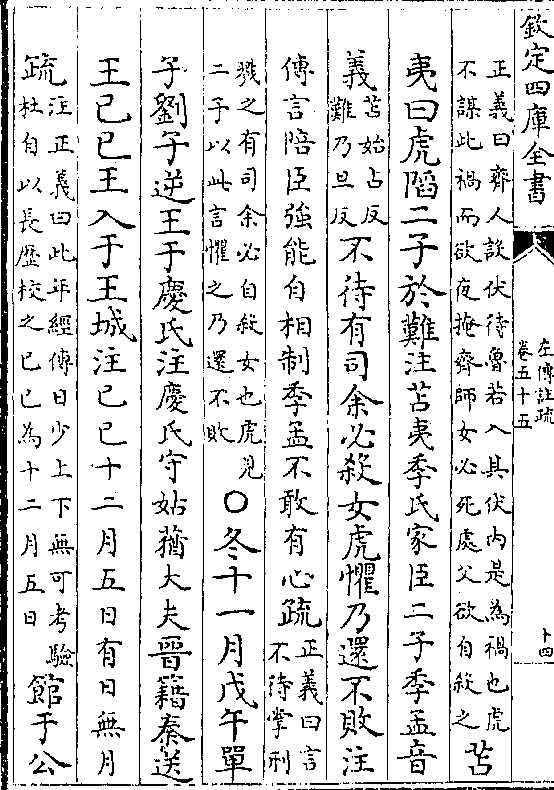 欽定四庫全書
左傳註疏
卷五十五
十四
正義曰齊人設伏待魯若入其伏内是為禍也虎
不謀此禍而欲夜掩齊師女必死處父欲自殺之
苫
夷曰虎陷二子於難注苫夷季氏家臣二子季孟音
義
苫始占反
難乃旦反
不待有司余必殺女虎懼乃還不敗注
傳言陪臣強能自相制季孟不敢有心疏
正義曰言
不待掌刑
戮之有司余必自殺女也虎見
二子以此言懼之乃還不敗
○冬十一月戊午單
子劉子逆王于慶氏注慶氏守姑蕕大夫晉籍秦送
王己巳王入于王城注己巳十二月五日有日無月
疏
注正義曰此年經傳日少上下無可考驗
杜自以長歷校之己巳為十二月五日
館于公